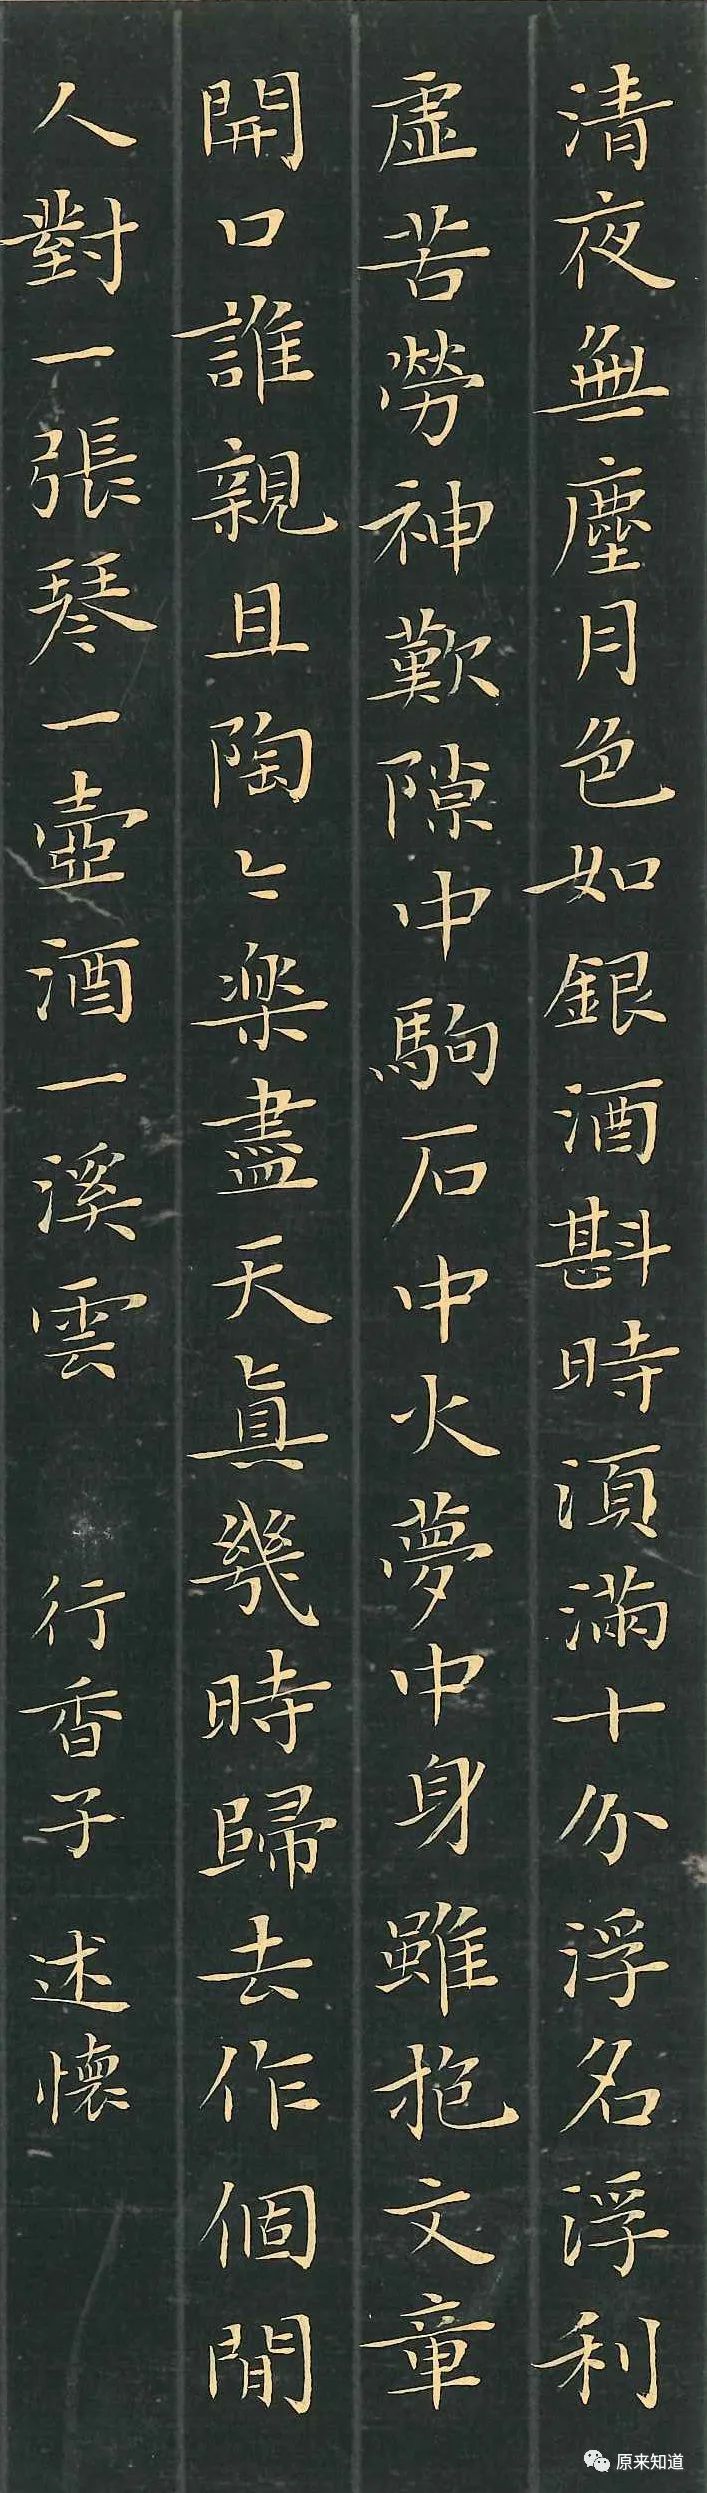 清夜無塵月色如銀酒斟時須滿十分浮名浮利
虛苦勞神歎隙中駒石中火夢中身雖抱文章
開口誰親且陶〻樂盡天真幾時歸去作個閒
人對一張琴一壺酒一溪雲 行香子 述懷
原来知道